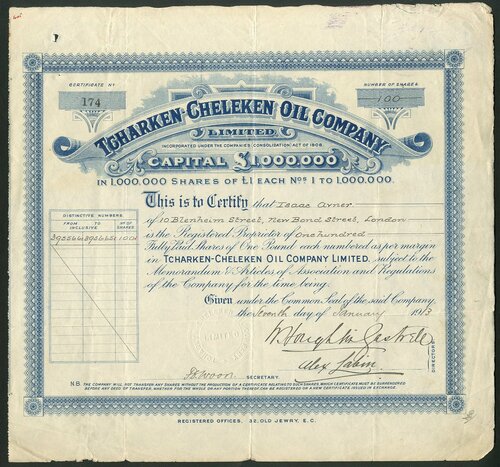 CERTIFICATE No
174
NUMBER OF SHARES
100
TCHARKEN-CHELEKEN OIL COMPANY
LIMITED
INCORPORATED UNDER THE COMPANIES (CONSOLIDATION) ACT OF 1908.
CAPITAL £1,000,000
IN 1,000,000 SHARES OF £1 EACH Nos 1 TO 1,000,000.
This is to Certify that Isaac Avner
of 10 Blenheim Street, New Bond Street, London
is the Registered Proprietor of One hundred
Fully Paid Shares of One Pound each numbered as per margin
in TCHARKEN-CHELEKEN OIL COMPANY LIMITED, subject to the
Memorandum & Articles of Association and Regulations
of the Company for the time being.
Given under the Common Seal of the said Company,
the Seventh day of January 1913
DISTINCTIVE NUMBERS
FROM TO No OF
INCLUSIVE SHARES
100
DIRECTORS
SECRETARY.
N.B. THE COMPANY WILL NOT TRANSFER ANY SHARES WITHOUT THE PRODUCTION OF A CERTIFICATE RELATING TO SUCH SHARES, WHICH CERTIFICATE MUST BE SURRENDERED
BEFORE ANY DEED OF TRANSFER, WHETHER FOR THE WHOLE OR ANY PORTION THEREOF, CAN BE REGISTERED OR A NEW CERTIFICATE ISSUED IN EXCHANGE.
REGISTERED OFFICES. 32, OLD JEWRY, E.C.